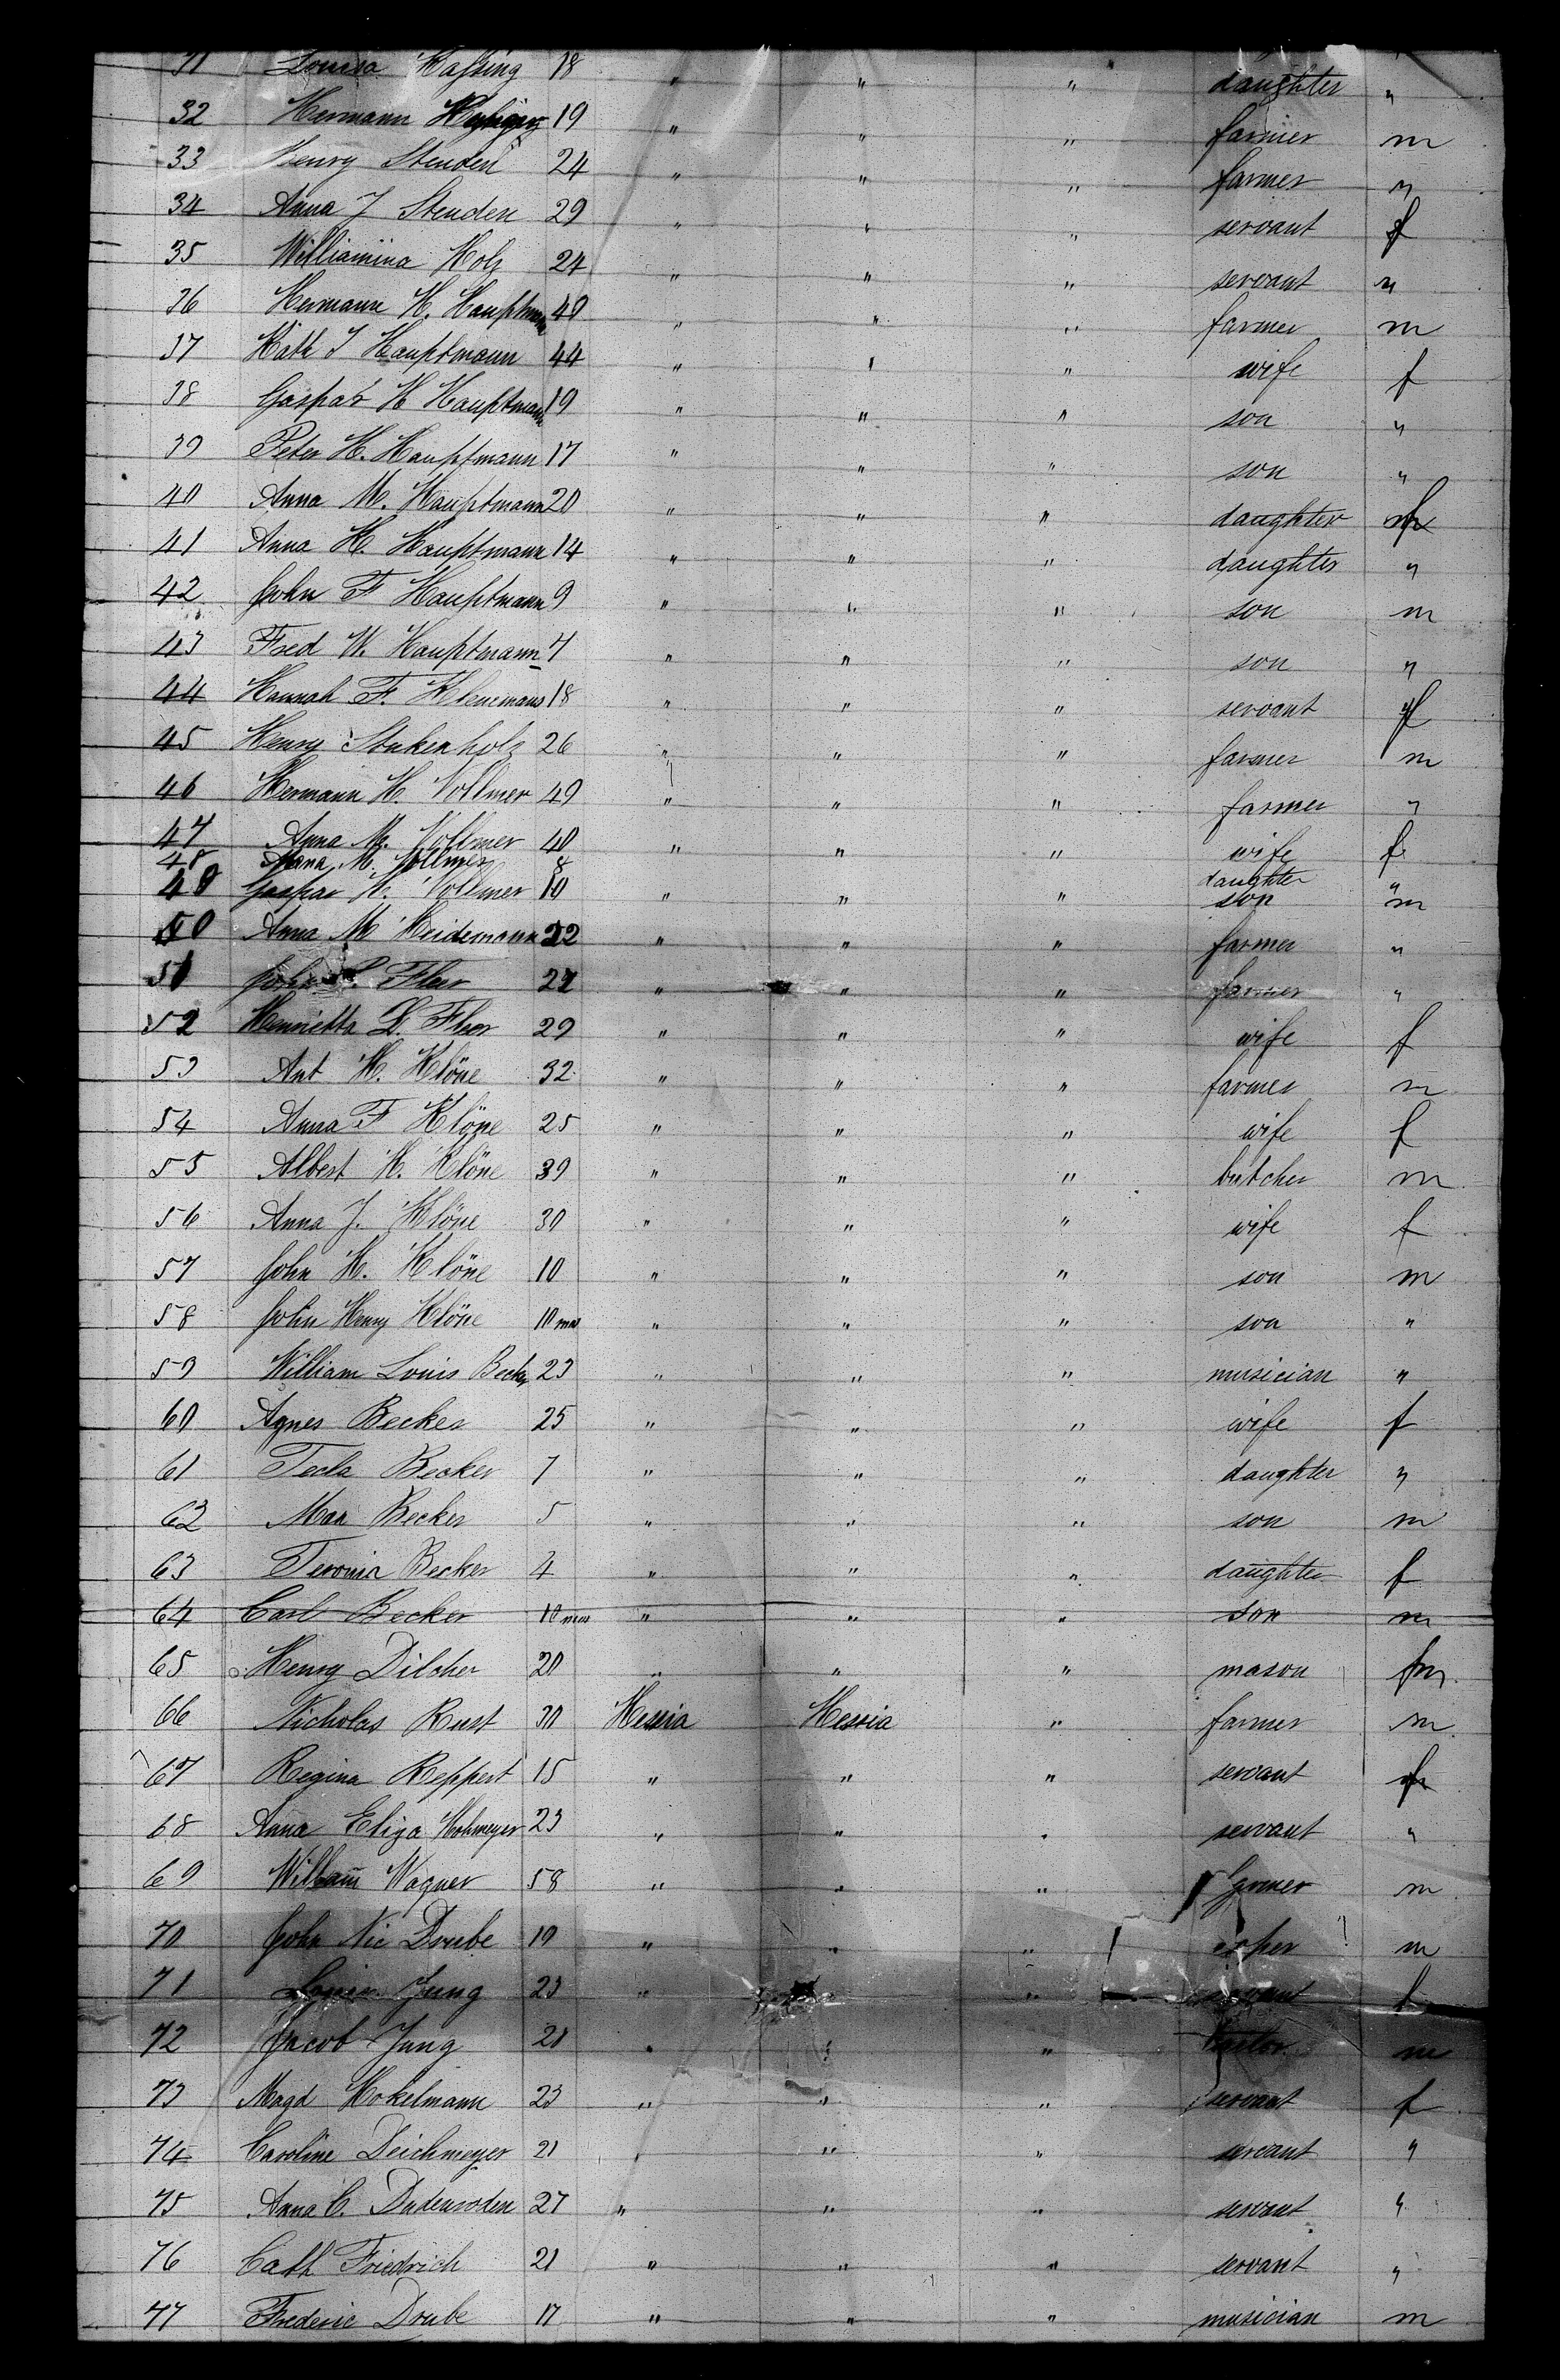 31 Louisa Haßing 18 " " " daughter "
32 Hermann 19 " " " farmer m
33 Henry Stenden 24 " " " farmer "
34 Anna J Stenden 29 " " " servant f
35 Williamina Holz 24 " " " servant "
36 Hermann H. Hauptmann 40 " " " farmer m
37 Kath J Hauptmann 44 " " " wife f
38 Gaspar H Hauptmann 19 " " " son "
39 Peter H. Hauptmann 17 " " " son "
40 Anna M. Hauptmann 20 " " " daughter f
41 Anna H. Hauptmann 14 " " " daughter "
42 John F Hauptmann 9 " " " son m
43 Fred W. Hauptmann 4 " " " son "
44 Hannah F. 18 " " " servant f
45 Henry Stukenholz 26 " " " farmer m
46 Hermann H. Vollmer 49 " " " farmer "
47 Anna M. Vollmer 40 " " " wife f
48 Anna M. Vollmer 8 daughter "
49 Gaspar H. Vollmer 10 " " " son m
50 Anna M Heidemann 22 " " " farmer "
51 John Fleer " " " farmer "
52 Henrietta L. Fleer 29 " " " wife f
53 Ant H. Klöne 32 " " " farmer m
54 Anna F Klöne 25 " " " wife f
55 Albert H. Klöne 39 " " " butcher m
56 Anna J. Klöne 30 " " " wife f
57 John H. Klöne 10 " " " son m
58 John Henry Klöne 10 mos " " " son "
59 William Louis Becker 23 " " " musician "
60 Agnes Becker 25 " " " wife f
61 Tecla Becker 7 " " " daughter "
62 Max Becker 5 " " " son m
63 Becker 4 " " " daughter f
64 Carl Becker 10 mos " " " son m
65 Henry Dilcher 20 " " " mason m
66 Nicholas Rust 30 Hessia Hessia " farmer m
67 Regina Reppert 15 " " " servant f
68 Anna Eliza Hohmeyer 23 " " " servant "
69 William Wagner 58 " " " m
70 John Nic Drube 19 " " " m
71 Jung 23 " " " servant f
72 Jacob Jung 21 " " " m
73 Magd Hokelmann 23 " " " servant f
74 Caroline Deichmeyer 21 " " " servant "
75 Anna C. Dudenroden 27 " " " servant "
76 Cath Friedrich 21 " " " servant "
77 Frederic Drube 17 " " " musician m